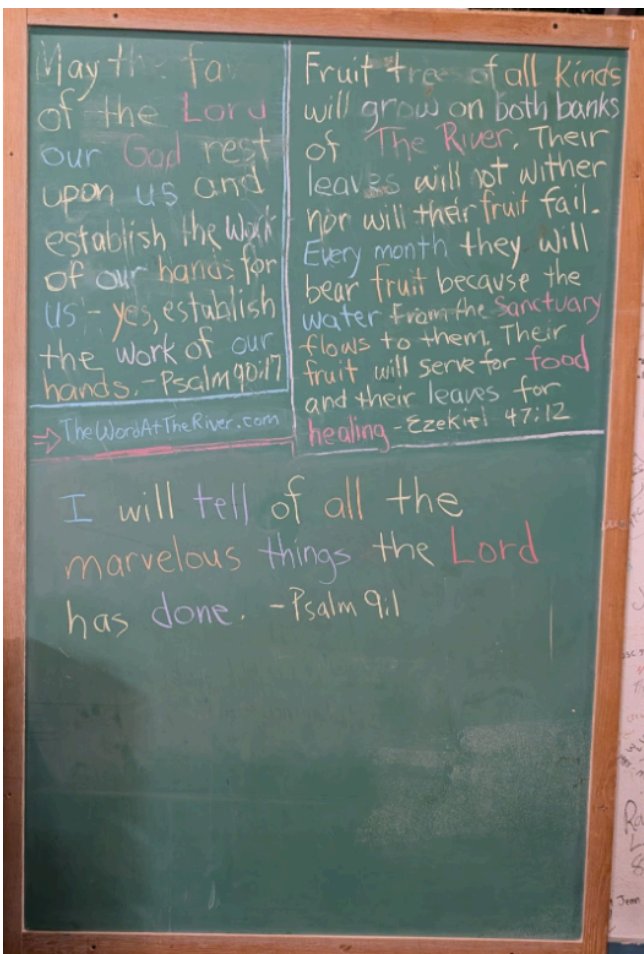 May the fa
of the Lord
our God rest
upon us and
establish the work
of our hands for
us - yes, establish
the work of our
hands. - Psalm 90:17
→ TheWordAtTheRiver.com
Fruit trees of all kinds
will grow on both banks
of The River. Their
leaves will not wither
nor will their fruit fail.
Every month they will
bear fruit because the
water from the Sanctuary
flows to them. Their
fruit will serve for food
and their leaves for
healing - Ezekiel 47:12
I will tell of all the
marvelous things the Lord
has done. - Psalm 9:1
Jenn